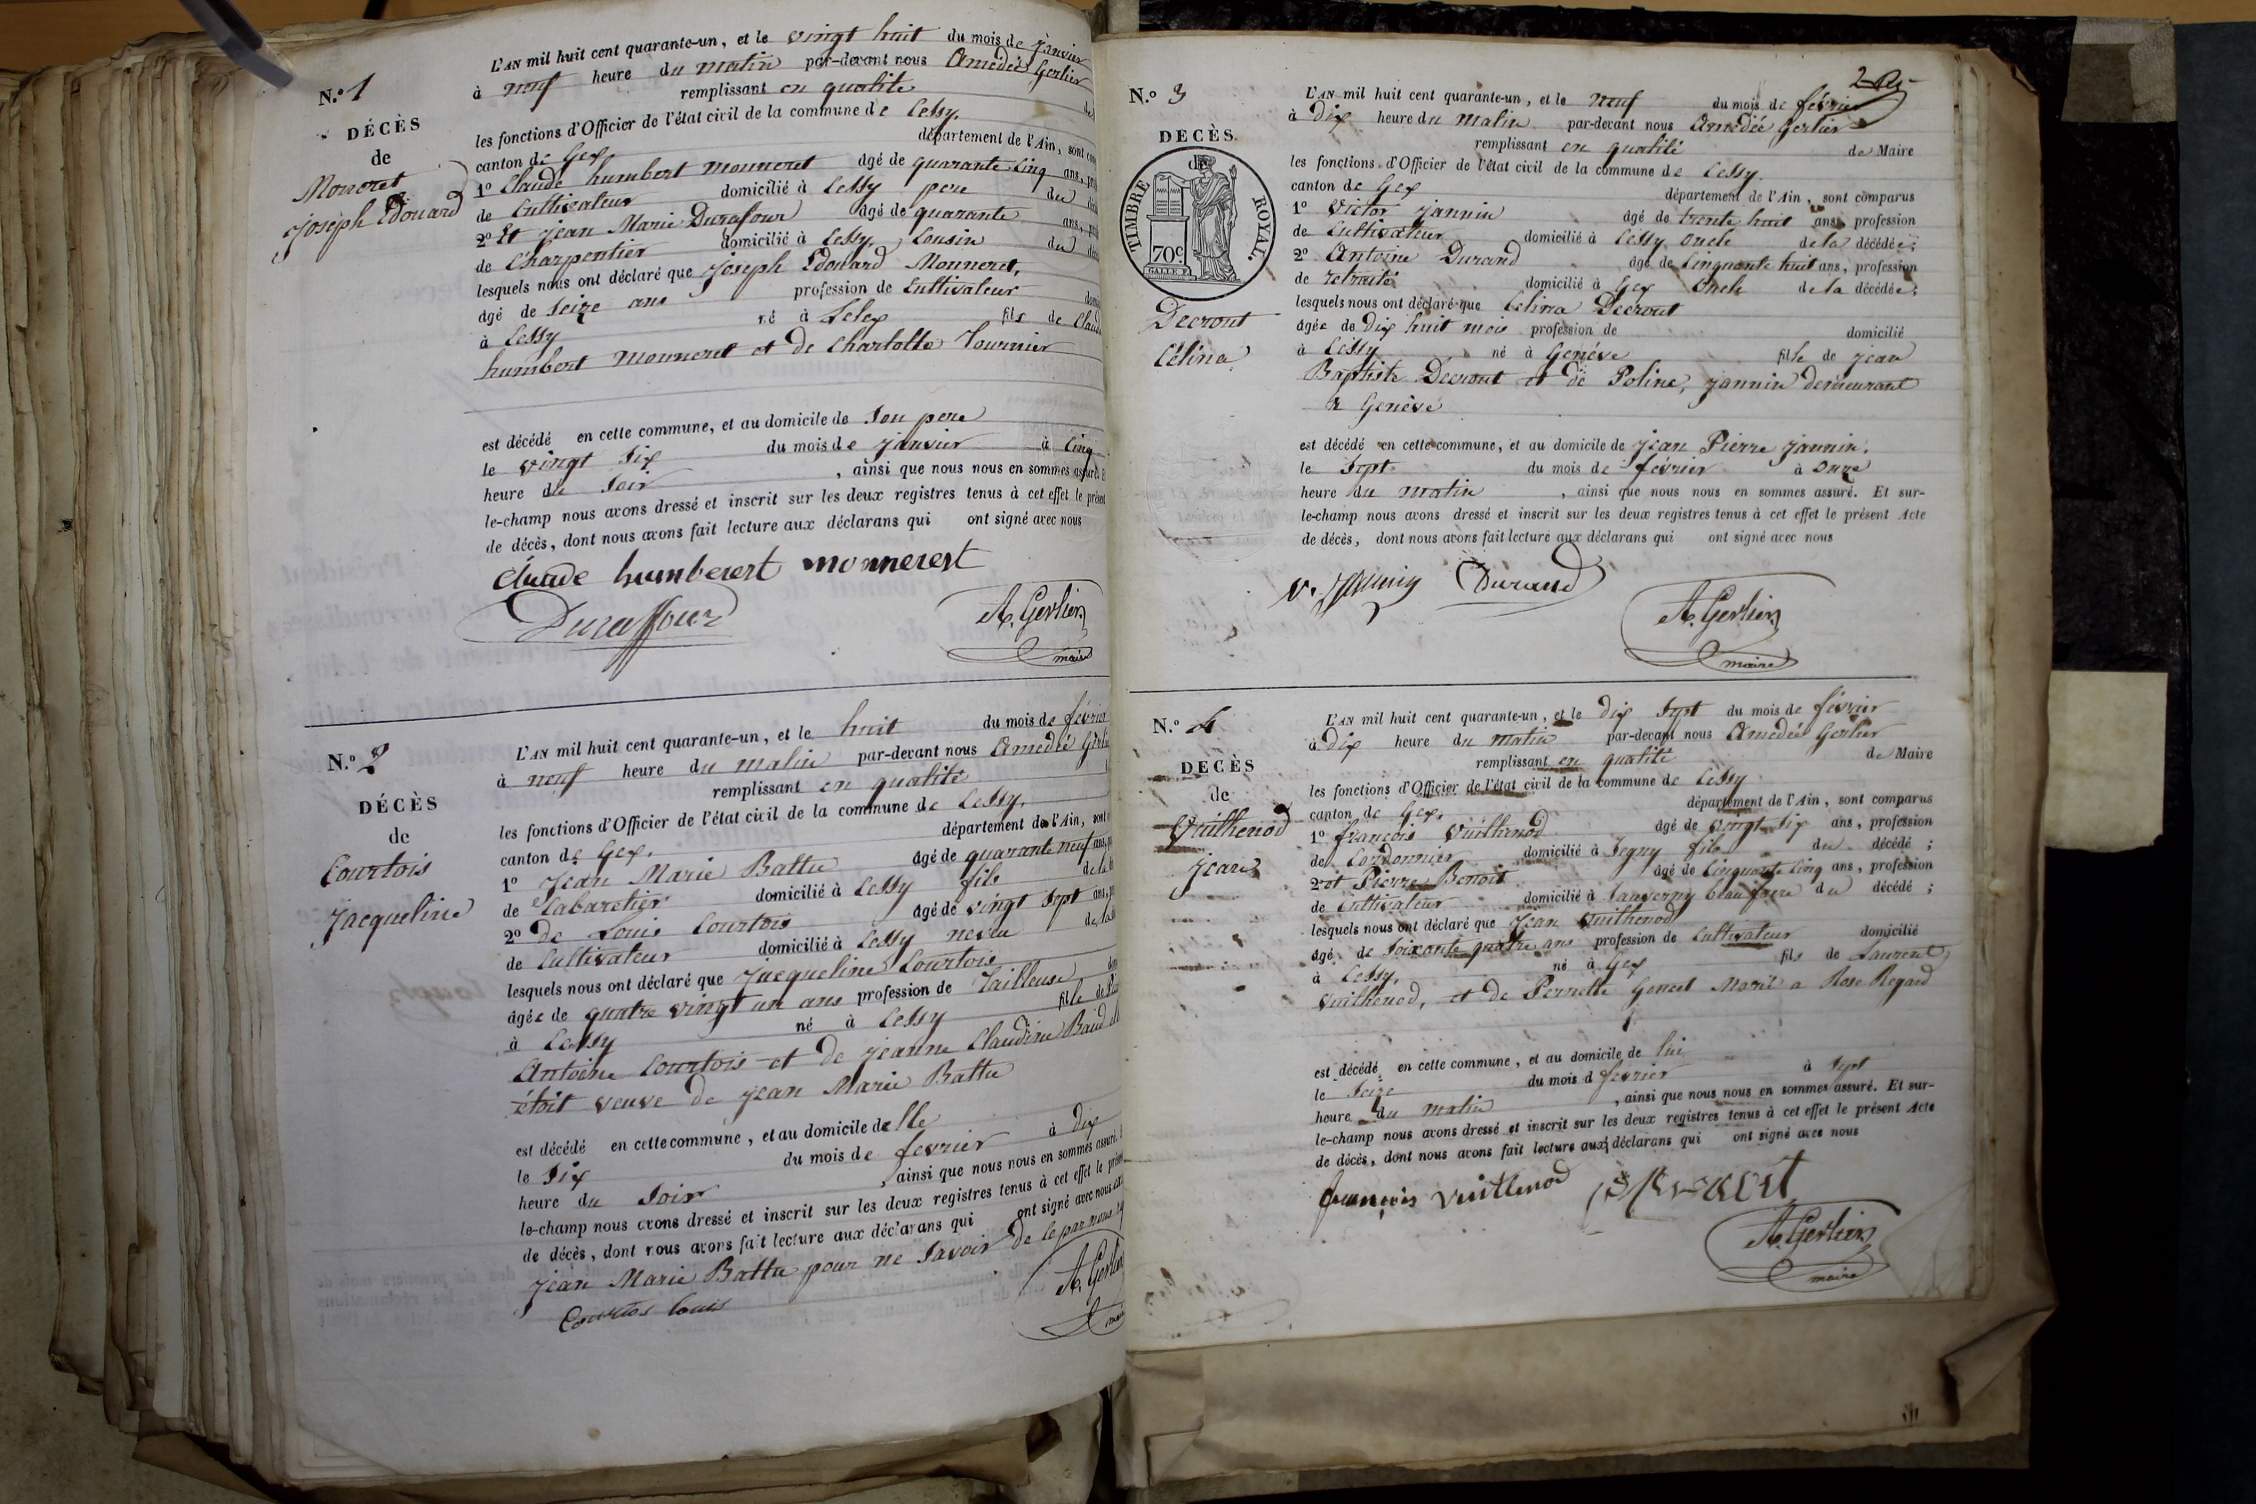 N.º 1
DÉCÈS
de
Monneret
Joseph Edouard
L'AN mil huit cent quarante-un, et le vingt huit du mois de janvier
à neuf heure du matin par-devant nous Amédée Gerlier
remplissant en qualité
les fonctions d'Officier de l'état civil de la commune de Cessy.
canton de Gex département de l'Ain, sont
1º Claude humbert Monneret agé de quarante cinq ans,
de Cultivateur domicilié à Cessy pere du
2º Et Jean Marie Duraffour agé de quarante ans,
de Charpentier domicilié à Cessy, Cousin du
lesquels nous ont déclaré que Joseph Edouard Monneret,
agé de Seize ans profession de Cultivateur
à Cessy né à Lelex fils de Claude
humbert Monneret et de Charlotte Tournier
est décédé en cette commune, et au domicile de Son pere
le vingt Six du mois de janvier à Cinq
heure du Soir , ainsi que nous nous en sommes assuré. E
le-champ nous avons dressé et inscrit sur les deux registres tenus à cet effet le présent
de décès, dont nous avons fait lecture aux déclarans qui ont signé avec nous
claude humberert monnerest
Duraffour
A. Gerlier
maire
N.º 2
DÉCÈS
de
Courtois
Jacqueline
L'AN mil huit cent quarante-un, et le huit du mois de février
à neuf heure du matin par-devant nous Amédée Gerlier
remplissant en qualité
les fonctions d'Officier de l'état civil de la commune de Cessy.
canton de Gex. département de l'Ain, sont
1º Jean Marie Battu agé de quarante neuf ans,
de Cabaretier domicilié à Cessy fils de la
2º de Louis Courtois agé de vingt Sept ans,
de Cultivateur domicilié à Cessy neveu de la
lesquels nous ont déclaré que Jacqueline Courtois
agée de quatre vingt un ans profession de Tailleuse
à Cessy né à Cessy fille de
Antoine Courtois et de Jeanne Claudine Baud
étoit veuve de Jean Marie Battu
est décédé en cette commune, et au domicile de lle
le Six du mois de février à dix
heure du Soir , ainsi que nous nous en sommes assuré.
le-champ nous avons dressé et inscrit sur les deux registres tenus à cet effet le présent
de décès, dont nous avons fait lecture aux déclarans qui ont signé avec nous
Jean Marie Battu pour ne Savoir de ce par nous
Courtois louis
A. Gerlier
maire
2
N.º 3
DÉCÈS.
de
TIMBRE ROYAL.
70 c.
Decrout
Célina
L'AN mil huit cent quarante-un, et le neuf du mois de février
à Dix heure du Matin par-devant nous Amédée Gerlier
remplissant en qualité de Maire
les fonctions d'Officier de l'état civil de la commune de Cessy.
canton de Gex département de l'Ain, sont comparus
1º Victor Jannin agé de trente huit ans, profession
de Cultivateur domicilié à Cessy oncle de la décédée;
2º Antoine Durand agé de Cinquante huit ans, profession
de retraité domicilié à Gex Oncle de la décédée;
lesquels nous ont déclaré que Celina Decrout
agée de Dix huit mois profession de domicilié
à Cessy né à Genève fille de Jean
Baptiste Decrout et de Poline, Jannin demeurant
a Genève
est décédé en cette commune, et au domicile de Jean Pierre Jannin.
le Sept du mois de février à onze
heure du matin , ainsi que nous nous en sommes assuré. Et sur-
le-champ nous avons dressé et inscrit sur les deux registres tenus à cet effet le présent Acte
de décès, dont nous avons fait lecture aux déclarans qui ont signé avec nous
v. Jannin Durand
A. Gerlier
maire
N.º 4
DÉCÈS
de
Vuithenod
Jean
L'AN mil huit cent quarante-un, et le dix Sept du mois de février
à Dix heure du matin par-devant nous Amédée Gerlier
remplissant en qualité de Maire
les fonctions d'Officier de l'état civil de la commune de Cessy
canton de Gex. département de l'Ain, sont comparus
1º françois Vuithenod agé de vingt Six ans, profession
de Cordonnier domicilié à Segny fils du décédé;
2º et Pierre Benoit agé de Cinquante Cinq ans, profession
de Cultivateur domicilié à Sauverny beau frere du décédé;
lesquels nous ont déclaré que Jean Vuithenod
agé de Soixante quatre ans profession de Cultivateur domicilié
à Cessy. né à Gex fils de Laurent,
Vuithenod, et de Pernette Goncet Marié a Rose Regard
est décédé en cette commune, et au domicile de lui
le Seize du mois d février à Sept
heure du matin , ainsi que nous nous en sommes assuré. Et sur-
le-champ nous avons dressé et inscrit sur les deux registres tenus à cet effet le présent Acte
de décès, dont nous avons fait lecture aux déclarans qui ont signé avec nous
françois vuithenod
A. Gerlier
maire